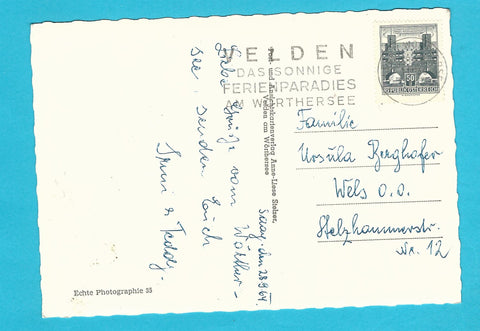 VELDEN
DAS SONNIGE
FERIENPARADIES
AM WÖRTHERSEE
50
REPUBLIK ÖSTERREICH
Familie
Ursula Berghofer
Wels O.Ö.
Stelzhammerstr.
Nr. 12
Post- und Ansichtskartenverlag Anne-Liese Stelzer,
Velden am Wörthersee
den 28.9.64
Liebe Grüße vom Wörther-
see, senden Euch
Echte Photographie 55